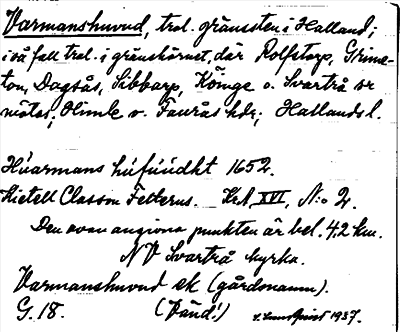 Varmanshuvud, trol. gränssten i Halland;
i så fall trol. i gränshörnet, där Rolfstorp, Grime-
ton, Dagsås, Sibbarp, Köinge o. Svartrå sr
mötas; Himle o. Faurås hdr; Hallands l.
Huarmans hufuudht 1652.
Kietell Classon Felterus. Krt. XVI, N:o 2.
Den ovan angivna punkten är bel. 4,2 km.
NV Svartrå kyrka.
Varmanshuvud ek (gårdsnamn).
G. 18. (Vänd!) 1937.